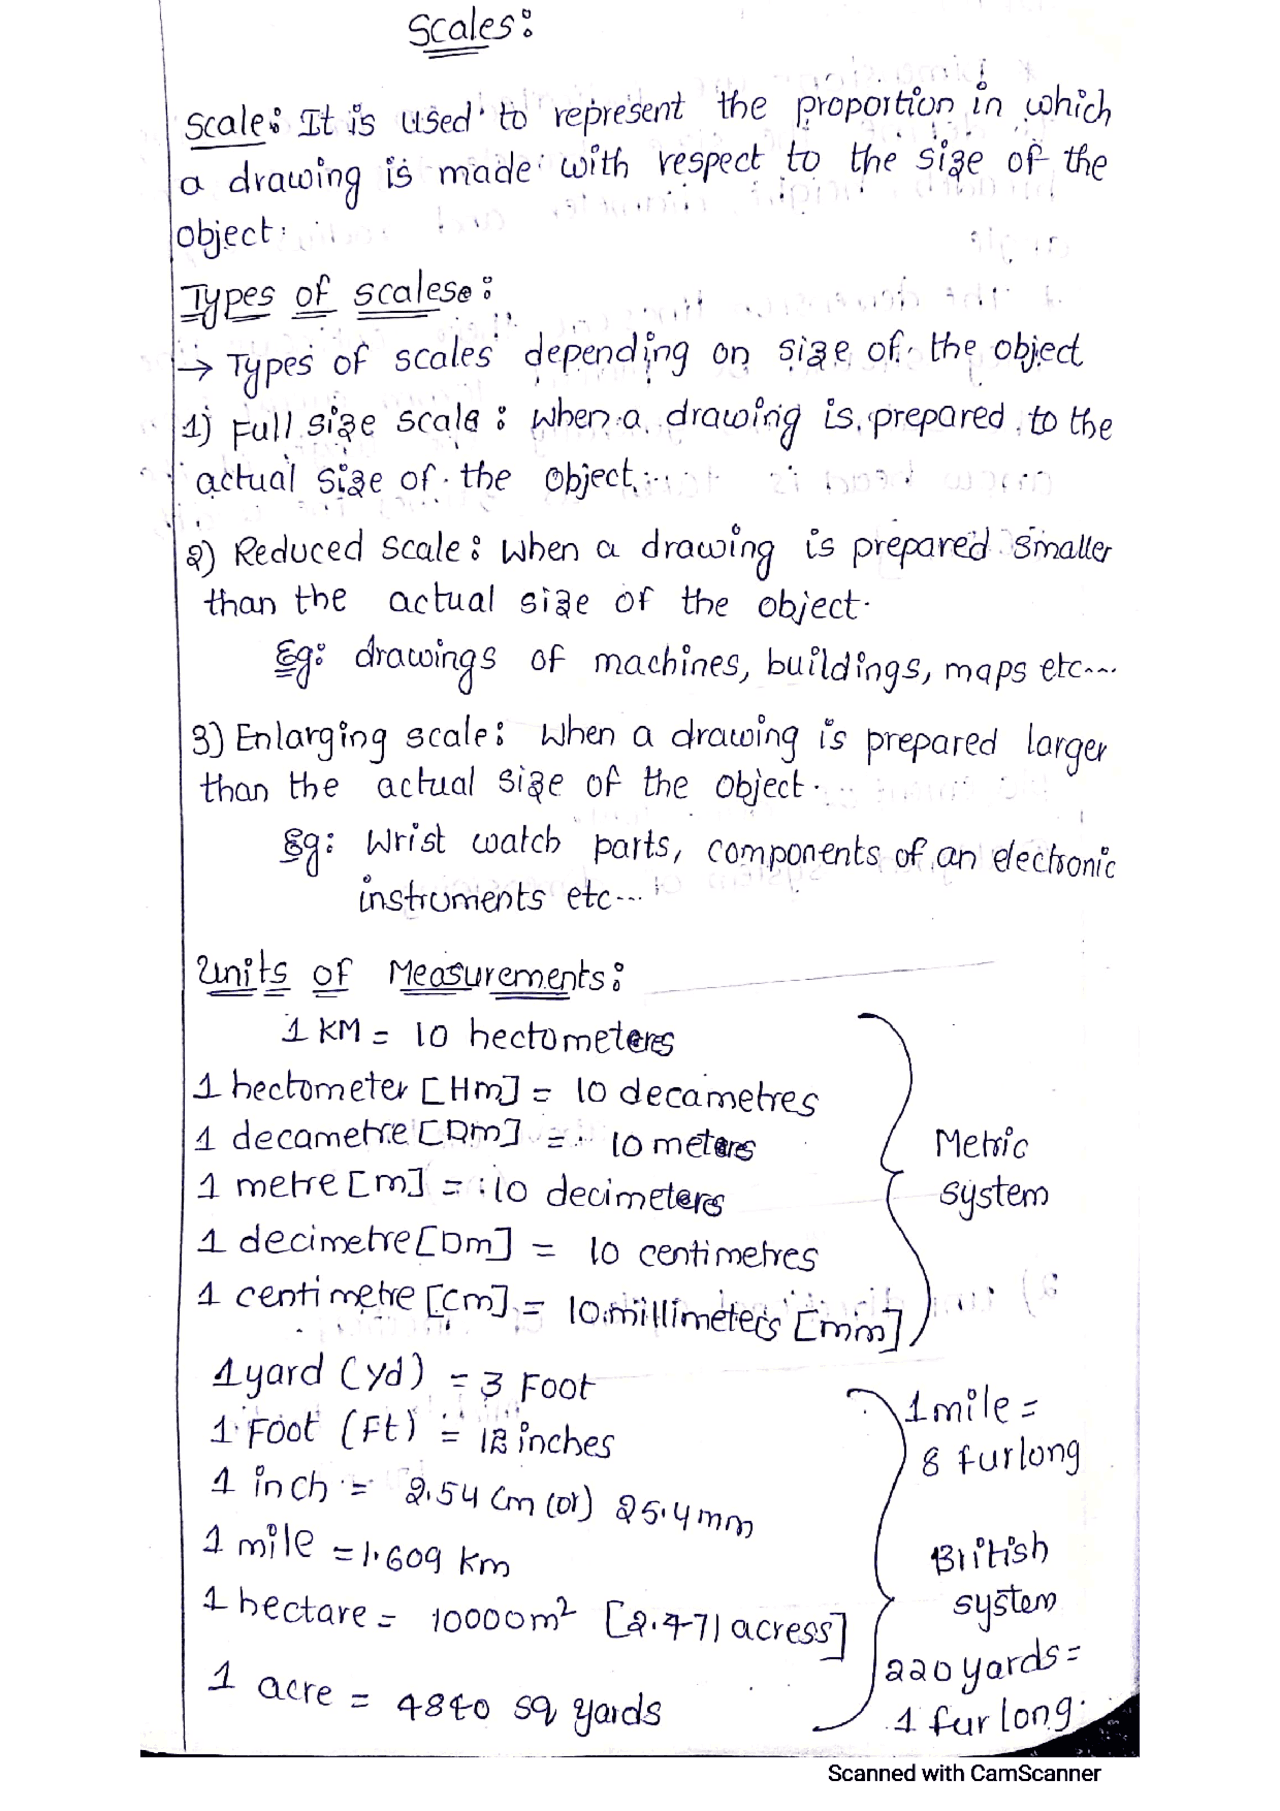 Scales:
Scale: It is used to represent the proportion in which
a drawing is made with respect to the size of the
object.
Types of scales:
→ Types of scales depending on size of the object
1) Full size scale: when a drawing is prepared to the
actual size of the object.
2) Reduced scale: when a drawing is prepared smaller
than the actual size of the object.
Eg: drawings of machines, buildings, maps etc....
3) Enlarging scale: when a drawing is prepared larger
than the actual size of the object.
Eg: Wrist watch parts, components of an electronic
instruments etc....
Units of Measurements:
1 KM = 10 hectometeres
1 hectometer [Hm] = 10 decametres
1 decametre [Dm] = 10 meters
1 metre [m] = 10 decimeters
1 decimetre [Dm] = 10 centimetres
1 centimetre [cm] = 10 millimeters [mm]
Metric
system
1 yard (yd) = 3 Foot
1 Foot (Ft) = 12 inches
1 inch = 2.54 cm (or) 25.4 mm
1 mile = 1.609 km
1 hectare = 10000 m² [2.471 acress]
1 acre = 4840 sq yards
1 mile =
8 furlong
British
system
220 yards =
1 furlong.
Scanned with CamScanner